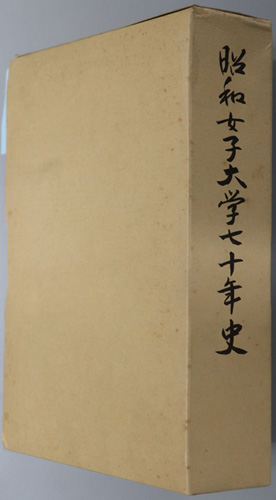 昭和女子大学七十年史